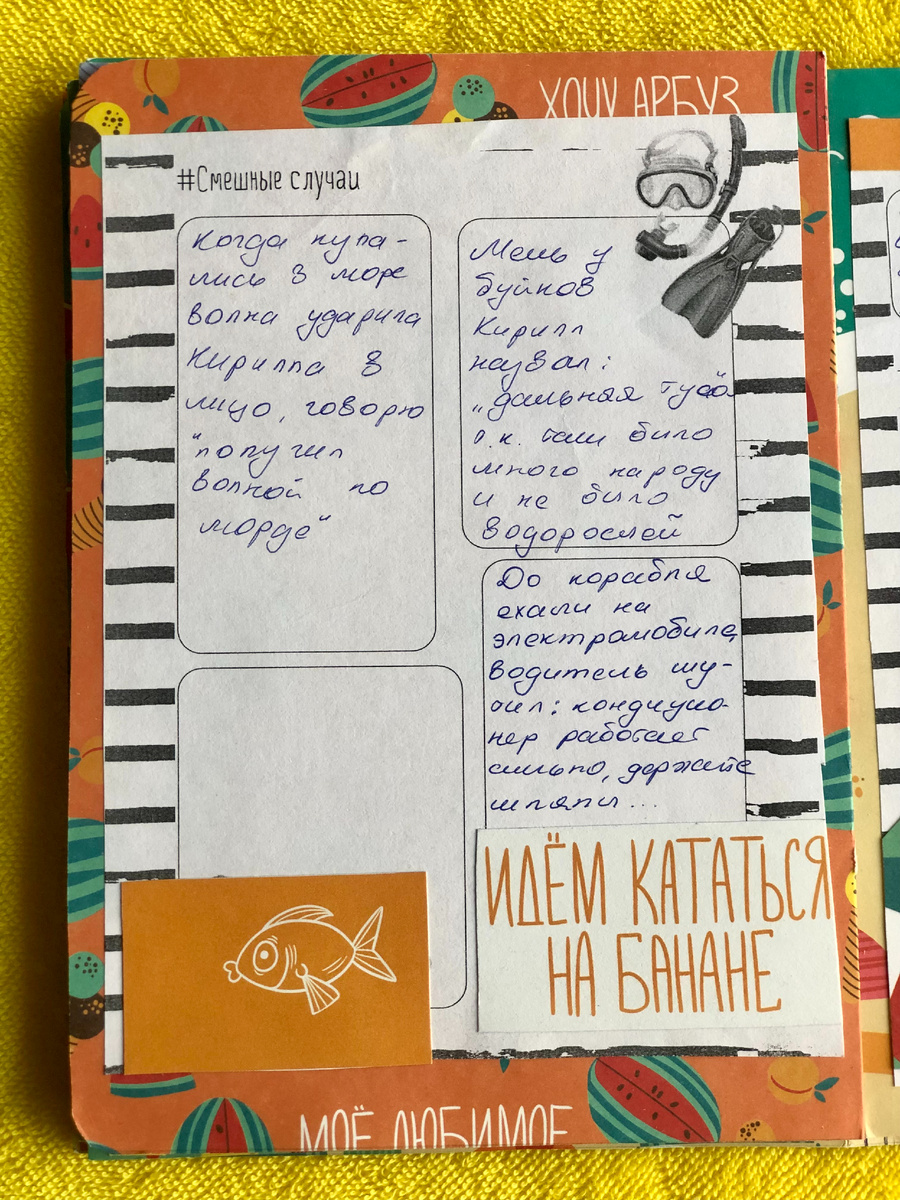 ХОЧУ АРБУЗ
#Смешные случаи
Когда купа-
лись в море
волна ударила
Кирилла в
лицо, говорю
"получил
волной по
морде"
Мель у
буйков
Кирилл
назвал:
„дальняя туса"
т.к. там было
много народу
и не было
водорослей
До корабля
ехали на
электромобиле,
водитель шу-
тил: кондицио-
нер работает
сильно, держите
шляпы...
ИДЁМ КАТАТЬСЯ
НА БАНАНЕ
МОЁ ЛЮБИМОЕ